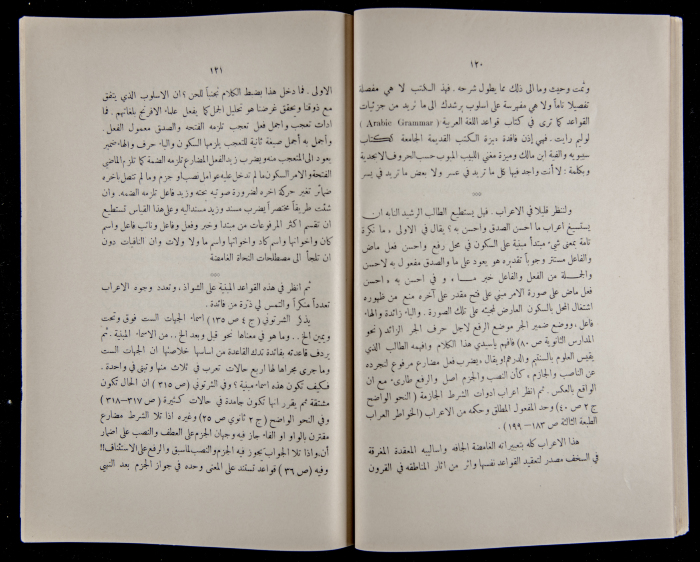 ١٢٠
وثمت وحيث وما الى ذلك مما يطول شرحه . فهذ الكتب لا هي مفصلة
تفصيلا تاماً ولا هي مفهرسة على اسلوب يرشدك الى ما تريد من جزئيات
القواعد كما ترى في كتاب قواعد اللغة العربية ( Arabic Grammar )
لوليم رايت . فهي إذن فاقدة ميزة الكتب القديمة الجامعة ككتاب
سيبويه والفية ابن مالك وميزة مغني اللبيب المبوب حسب الحروف الابجدية
وبكلمة : لا أنت واجد فيها كل ما تريد في عسر ولا بعض ما تريد في يسر
***
ولننظر قليلا في الاعراب . فهل يستطيع الطالب الرشيد النابه ان
يستسيغ اعراب ما احسن الصدق واحسن به ؟ يقال في الاولى « ما نكرة
تامة بمعنى شيء مبتدأ مبنية على السكون في محل رفع واحسن فعل ماض
والفاعل مستتر وجوباً تقديره هو يعود على ما والصدق مفعول به لاحسن
والجملة من الفعل والفاعل خبر ما » و في احسن به « احسن
فعل ماض على صورة الامر مبني على فتح مقدر على آخره منع من ظهوره
اشتغال المحل بالسكون العارض لمجيئه على تلك الصورة . والباء زائدة والهاء
فاعل ، ووضع ضمير الجر موضع الرفع لاجل حرف الجر الزائد ( نحو
المدارس الثانوية ص ٨٠ ) فافهم ياسيدي هذا الكلام وافهمه الطالب الذي
يقيس العلوم بالسنتيم والدرهم او يقال « يضرب فعل مضارع مرفوع لتجرده
عن الناصب والجازم » كأن النصب والجزم اصل والرفع طارىء مع ان
الواقع بالعكس . ثم انظر اعراب ادوات الشرط الجازمة ( النحو الواضح
ج ٢ ص ٤٠ ) وحد المفعول المطلق وحكمه من الاعراب ( الخواطر العراب
الطبعة الثالثة ص ١٨٣ – ١٩٩ ) .
هذا الاعراب كله بتعبيراته الغامضة الجافه واساليبه المعقدة المغرقة
في السخف مصدر لتعقيد القواعد نفسها واثر من اثار المناطقه في القرون
١٢١
الاولى . فما دخل هذا بضبط الكلام تجنباً للحن ؟ ان الاسلوب الذي يتفق
مع ذوقنا ويحقق غرضنا هو تحليل الجمل كما يفعل علماء الافرنج بلغاتهم . فما
ادات تعجب واجمل فعل تعجب تلزمه الفتحه والصدق معمول الفعل .
وأجمل به أجمل صيغة ثانية للتعجب يلزمها السكون والباء حرف والهاء ضمير
يعود الى المتعجب منه ويضرب زيد الفعل المضارع تلزمه الضمة كما تلزم الماضي
الفتحة والامر السكون ما لم تدخل عليه عوامل نصب او جزم وما لم تتصل باخره
ضمائر تغير حركة اخره لضرورة صوتيه بحته وزيد فاعل تلزمه الضمه . وان
شئت طريقاً مختصراً يضرب مسند وزيد مسند اليه وعلى هذا القياس تستطيع
ان تقسم اكثر المرفوعات من مبتدا وخبر وفعل وفاعل ونائب فاعل واسم
كان واخواتها واسم كاد واخواتها واسم ما ولا ولات وان النافيات دون
ان تلجأ الى مصطلحات النحاة الغامضة
***
ثم انظر في هذه القواعد المبنية على الشواذ ، وتعدد وجوه الاعراب
تعدداً منكراً والتمس لي ذرة من فائدة .
يذكر الشرتوني ( ج ٤ ص ١٣٥ ) اسماء الجهات الست فوق وتحت
ويمين الخ . . وما هو في معناها نحو قبل وبعد الخ . . من الاسماء المبنية . ثم
يردف قاعدته بفائدة تدك القاعدة من اساسها خلاصتها ان الجهات الست
وما جرى مجراها لها اربع حالات تعرب في ثلاث منها وتبنى في واحدة .
فكيف تكون هذه اسماء مبنية ؟ وفي الشرتوني ( ص ٣١٥ ) ان الحال تكون
مشتقة ثم يقرر انها تكون جامدة في حالات كثيرة ( ص ٣١٧ – ٣١٨ )
وفي النحو الواضح ( ج ٢ ثانوي ص ٢٥ ) وغيره اذا تلا الشرط مضارع
مقترن بالواو او الفاء جاز فيه وجهان الجزم على العطف والنصب على اضمار
أن، واذا تلا الجواب يجوز فيه الجزم والنصب لما سبق والرفع على الاستئناف !!
وفيه ( ص ٣٦ ) قواعد تستند على المعنى وحده في جواز الجزم بعد النهي